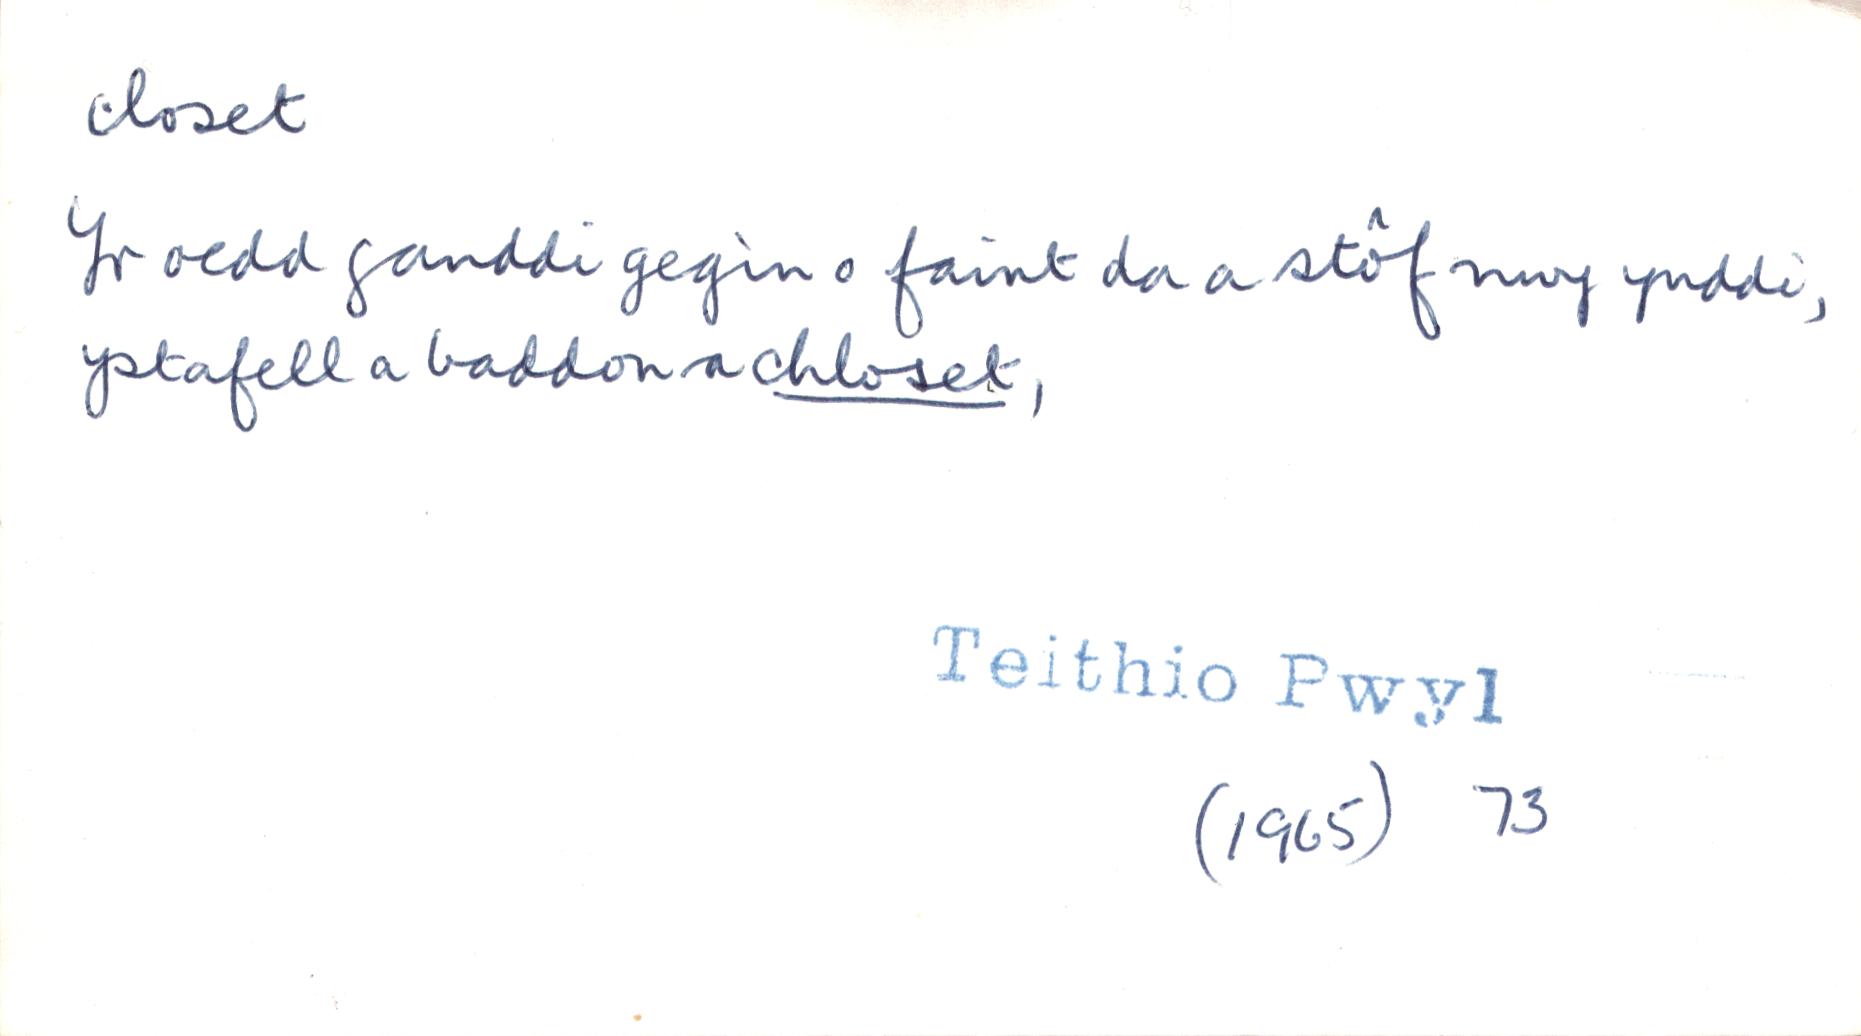 closet
Yr oedd ganddi gegin o faint da a stôf nwy ynddi,
ystafell a baddon a chloset,
Teithio Pwyl
(1965) 73